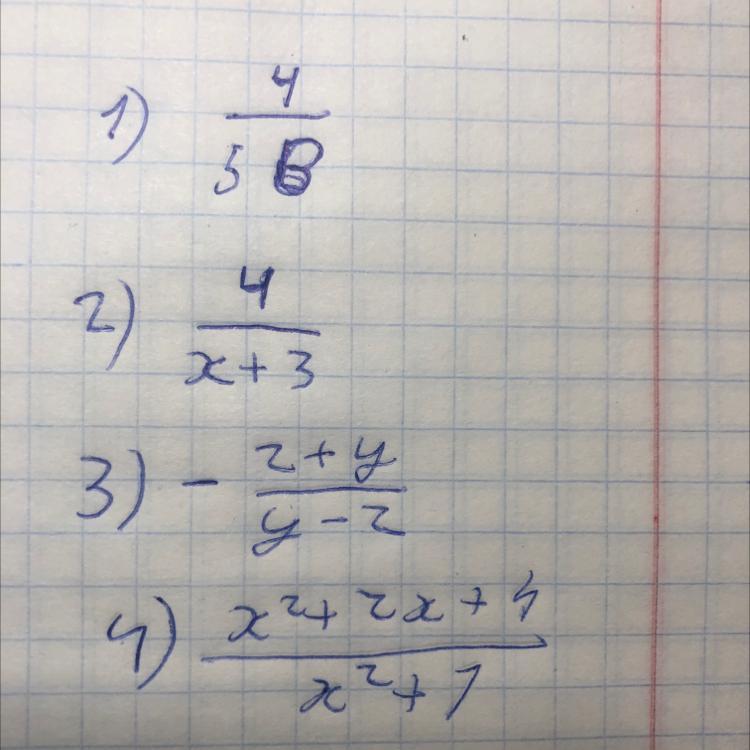 1) 4/5B
2) 4/(x+3)
3) - (2+y)/(y-2)
4) (x²+2x+4)/(x²+1)